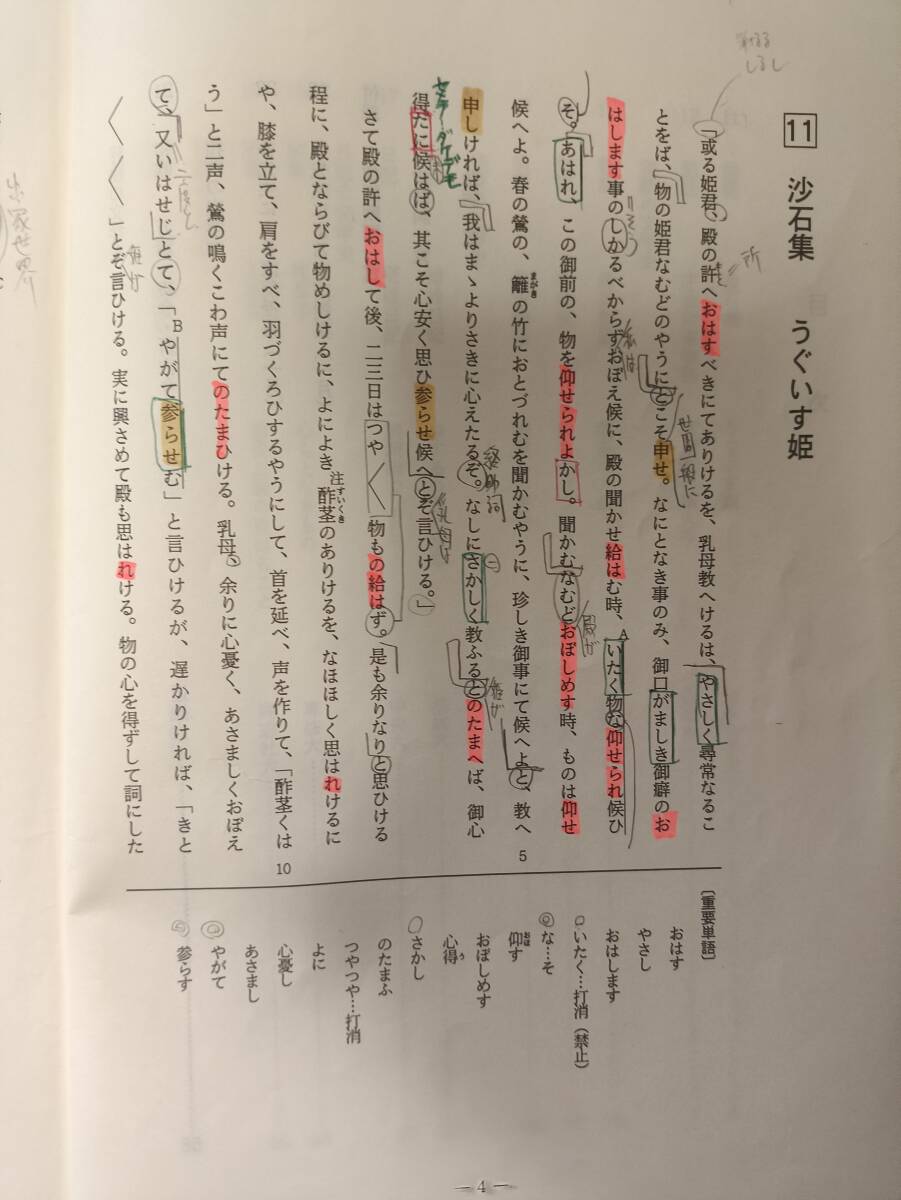 11 沙石集 うぐいす姫
「或る姫君、殿の許へおはすべきにてありけるを、乳母教へけるは、やさしく尋常なるこ
とをば、物の姫君なむどのやうにとこそ申せ。なにとなき事のみ、御口がましき御癖のお
はします事のしかるべからずおぼえ候に、殿の聞かせ給はむ時、Aいたく物な仰せられ候ひ
そ。あはれ、この御前の、物を仰せられよかし。聞かむなむどおぼしめす時、ものは仰せ
候へよ。春の鶯の、籬の竹におとづれむを聞かむやうに、珍しき御事にて候へよと、教へ
まがき
5
申しければ、我はまゝよりさきに心えたるぞ。なしにさかしく教ふるとのたまへば、御心
得だに候はば、其こそ心安く思ひ参らせ候へとぞ言ひける。」
さて殿の許へおはして後、二三日はつや〱物もの給はず。是も余りなりと思ひける
程に、殿とならびて物めしけるに、よによき酢茎のありけるを、なほほしく思はれけるに
注 すいくき
や、膝を立て、肩をすべ、羽づくろひするやうにして、首を延べ、声を作りて、「酢茎くは
10
う」と二声、鶯の鳴くこわ声にてのたまひける。乳母、余りに心憂く、あさましくおぼえ
て、又いはせじとて、「Bやがて参らせむ」と言ひけるが、遅かりければ、「きと
〱〱」とぞ言ひける。実に興さめて殿も思はれける。物の心を得ずして詞にした
〔重要単語〕
おはす
やさし
おはします
いたく…打消(禁止)
な…そ
仰す
おほ
おぼしめす
心得
う
さかし
のたまふ
つやつや…打消
よに
心憂し
あさまし
やがて
参らす
所
世間一般に
終助詞
殿が
姫が
乳母は
セメテ…ダケデモ
出家世界
—4—